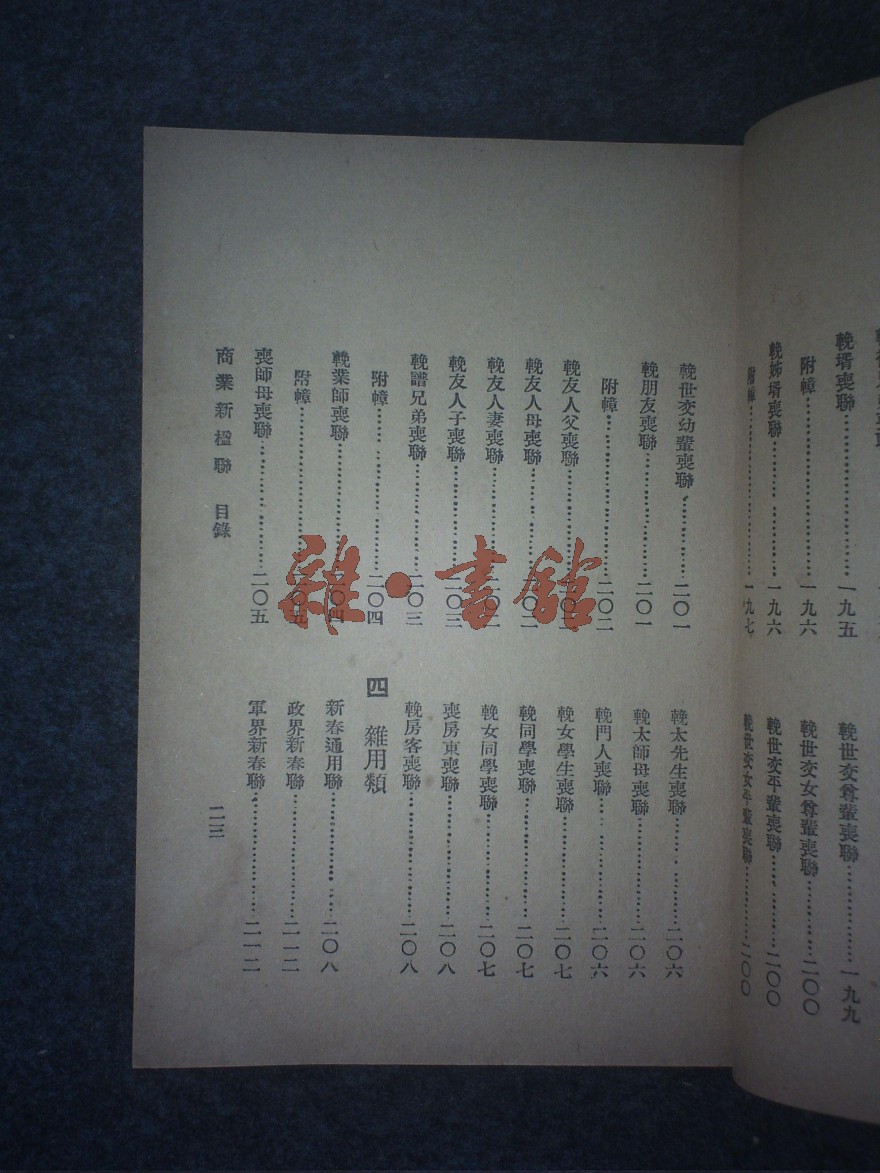 輓壻喪聯……………一九五
附幛……………一九六
輓姊壻喪聯……………一九六
附幛……………一九七
輓世交尊輩喪聯……………一九九
輓世交女尊輩喪聯……………二〇〇
輓世交平輩喪聯……………二〇〇
輓世交女平輩喪聯……………二〇〇
輓世交幼輩喪聯……………二〇一
輓朋友喪聯……………二〇一
附幛……………二〇二
輓友人父喪聯……………二〇二
輓友人母喪聯……………二〇二
輓友人妻喪聯……………二〇二
輓友人子喪聯……………二〇三
輓譜兄弟喪聯……………二〇三
附幛……………二〇四
輓業師喪聯……………二〇四
附幛……………二〇五
喪師母喪聯……………二〇五
輓太先生喪聯……………二〇六
輓太師母喪聯……………二〇六
輓門人喪聯……………二〇六
輓女學生喪聯……………二〇七
輓同學喪聯……………二〇七
輓女同學喪聯……………二〇七
喪房東喪聯……………二〇八
輓房客喪聯……………二〇八
四 雜用類
新春通用聯……………二〇八
政界新春聯……………二一二
軍界新春聯……………二一二
商業新楹聯 目錄
二三
雜·書館